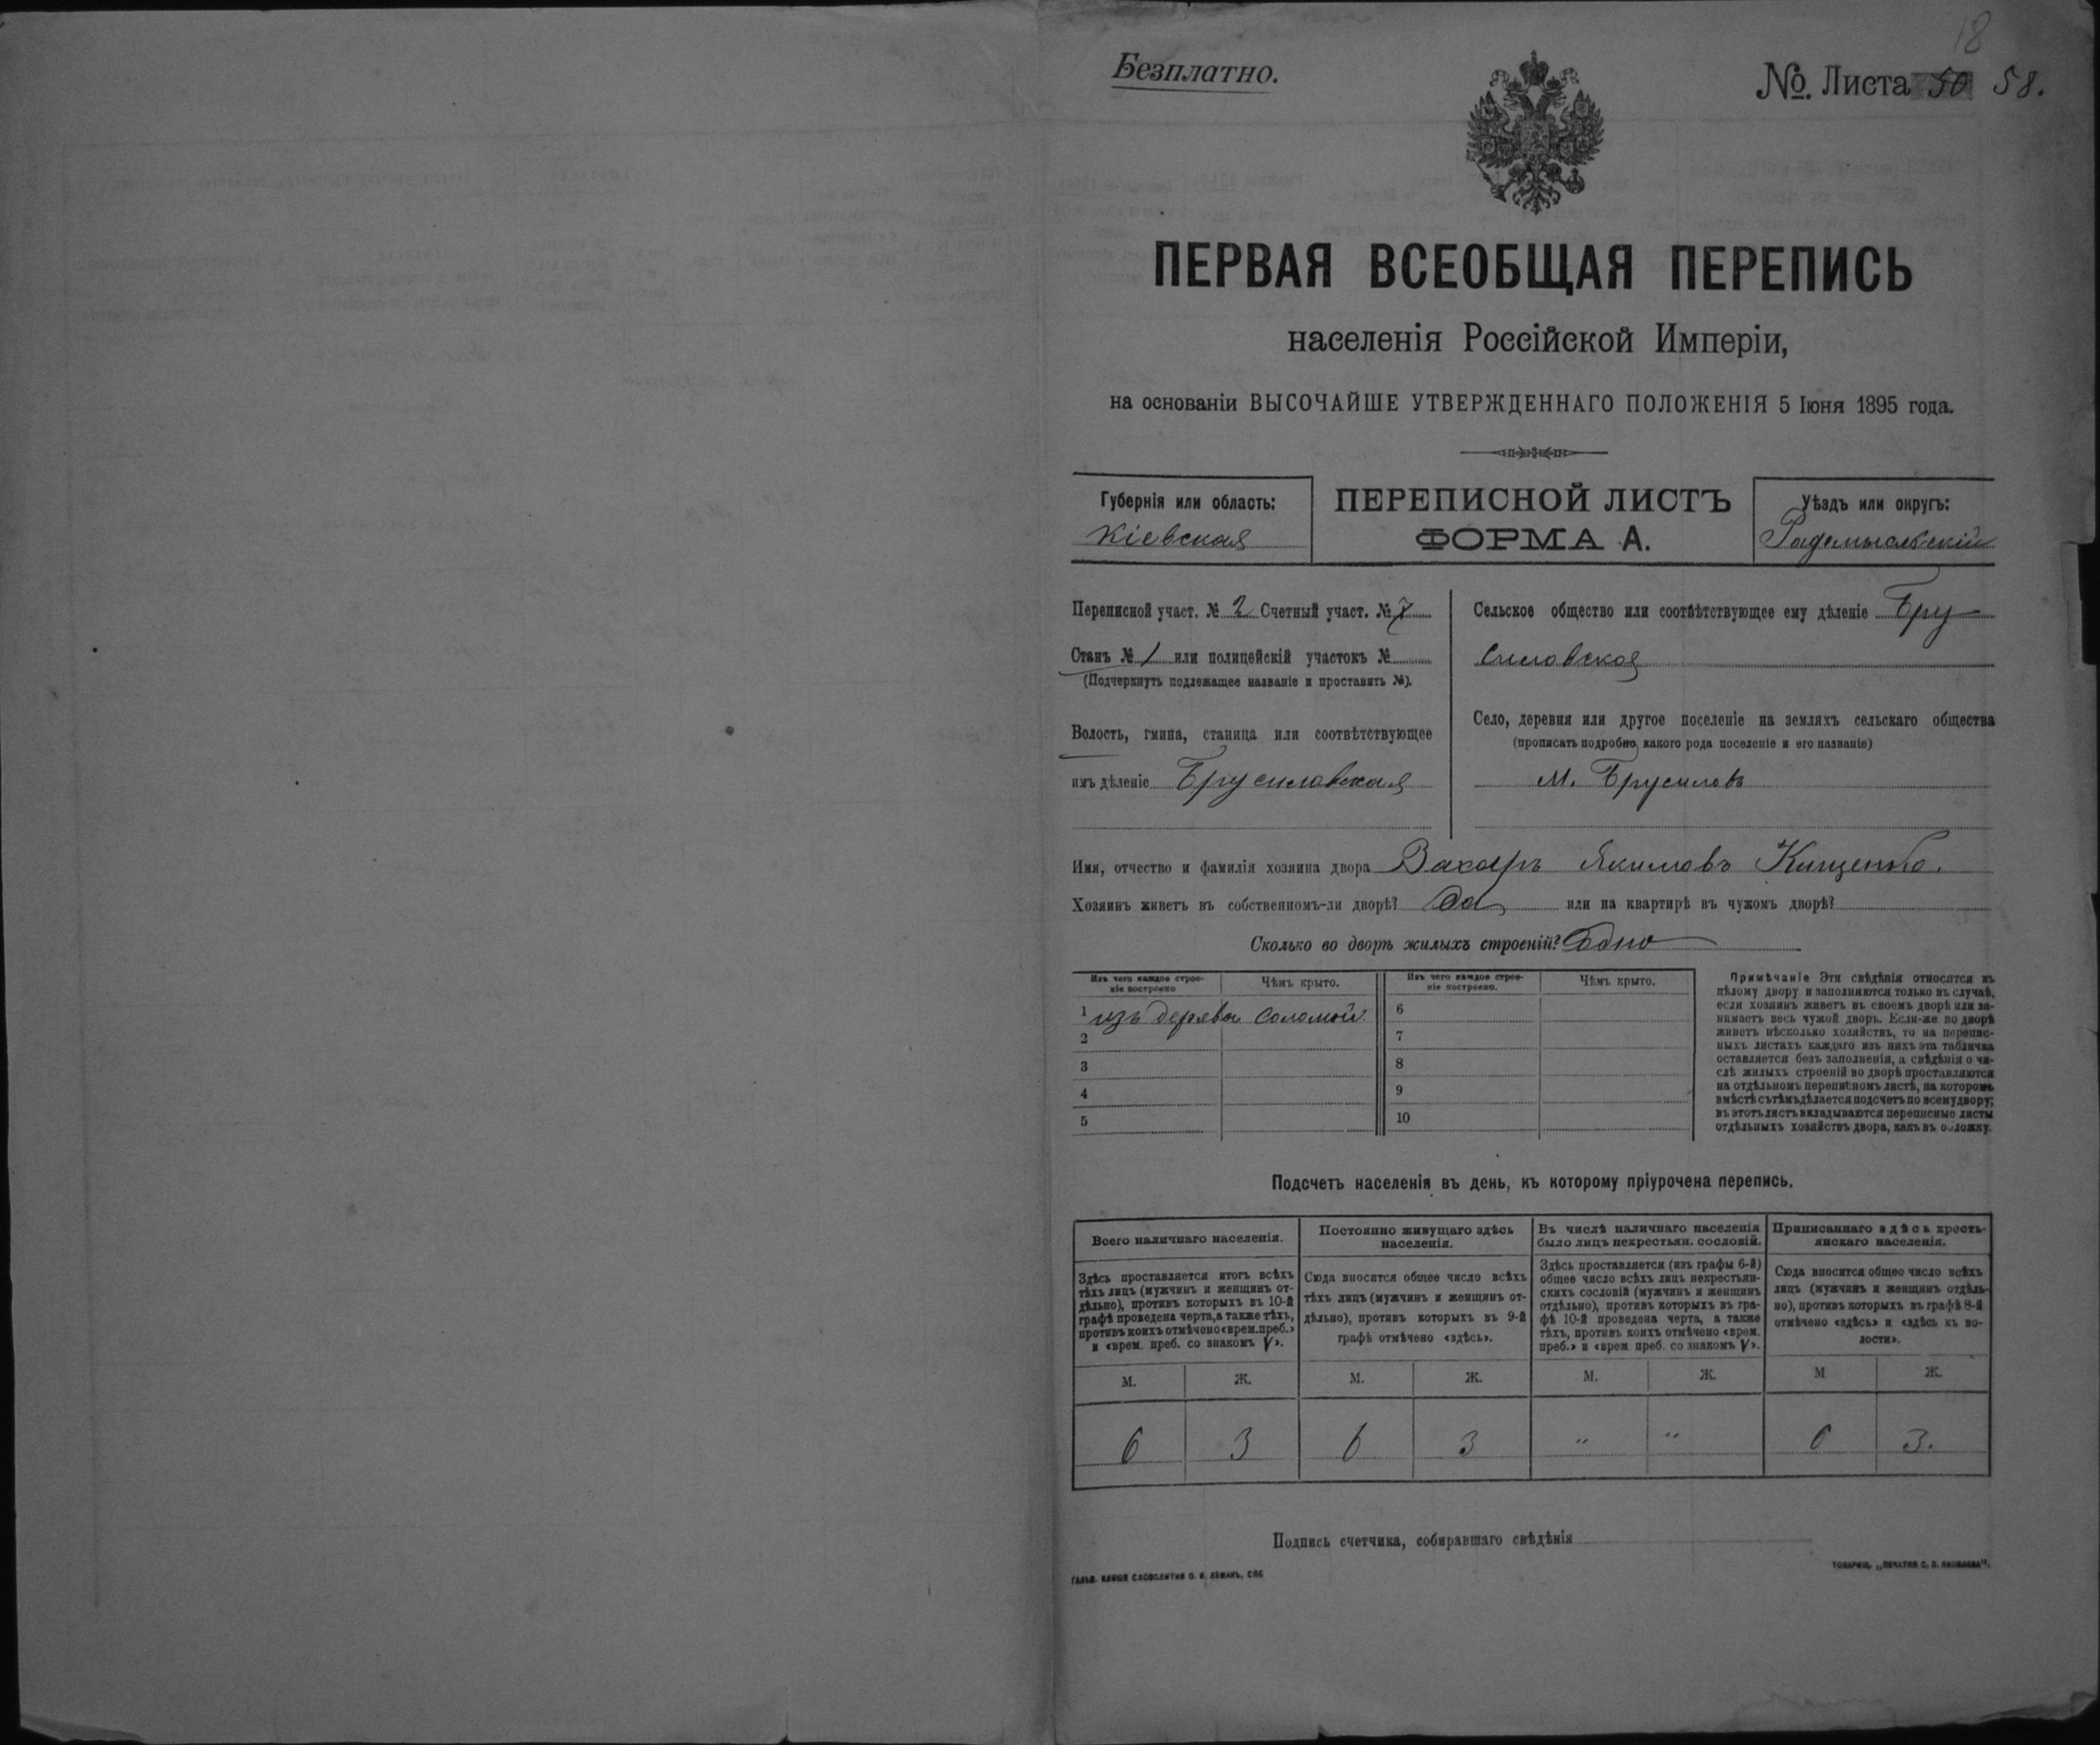 18
Безплатно.
№. Листа 50 58.
ПЕРВАЯ ВСЕОБЩАЯ ПЕРЕПИСЬ
населенія Россійской Имперіи,
на основаніи ВЫСОЧАЙШЕ УТВЕРЖДЕННАГО ПОЛОЖЕНІЯ 5 Іюня 1895 года.
Губернія или область:
Кіевская
ПЕРЕПИСНОЙ ЛИСТЪ
ФОРМА А.
Уѣздъ или округъ:
Радомысльскій
Переписной участ. № 2 Счетный участ. № 7
Станъ № 1 или полицейскій участокъ №
(Подчеркнуть подлежащее названіе и проставить №).
Волость, гмина, станица или соотвѣтствующее
имъ дѣленіе Брусиловская
Сельское общество или соотвѣтствующее ему дѣленіе Бру
силовское
Село, деревня или другое поселеніе на земляхъ сельскаго общества
(прописать подробно, какого рода поселеніе и его названіе)
м. Брусиловъ
Имя, отчество и фамилія хозяина двора Захаръ Якимовъ Кищенко.
Хозяинъ живетъ въ собственномъ-ли дворѣ? Да или на квартирѣ въ чужомъ дворѣ?
Сколько во дворѣ жилыхъ строеній? Одно
Изъ чего каждое строе-
ніе построено
Чѣмъ крыто.
Изъ чего каждое строе-
ніе построено.
Чѣмъ крыто.
1 изъ дерева соломой
2
3
4
5
6
7
8
9
10
Примѣчаніе Эти свѣдѣнія относятся къ
цѣлому двору и заполняются только въ случаѣ,
если хозяинъ живетъ въ своемъ дворѣ или за-
нимаетъ весь чужой дворъ. Если-же во дворѣ
живетъ нѣсколько хозяйствъ, то на перепис-
ныхъ листахъ каждаго изъ нихъ эта табличка
оставляется безъ заполненія, а свѣдѣнія о чи-
слѣ жилыхъ строеній во дворѣ проставляются
на отдѣльномъ переписномъ листѣ, на которомъ
вмѣстѣ съ тѣмъ дѣлается подсчетъ по всему двору;
въ этотъ листъ вкладываются переписные листы
отдѣльныхъ хозяйствъ двора, какъ въ обложку.
Подсчетъ населенія въ день, къ которому пріурочена перепись.
Всего наличнаго населенія.
Здѣсь проставляется итогъ всѣхъ
тѣхъ лицъ (мужчинъ и женщинъ от-
дѣльно), противъ которыхъ въ 10-й
графѣ проведена черта, а также тѣхъ,
противъ коихъ отмѣчено «врем. преб.»
и «врем. преб. со знакомъ V».
Постоянно живущаго здѣсь
населенія.
Сюда вносится общее число всѣхъ
тѣхъ лицъ (мужчинъ и женщинъ от-
дѣльно), противъ которыхъ въ 9-й
графѣ отмѣчено «здѣсь».
Въ числѣ наличнаго населенія
было лицъ некрестьян. сословій.
Здѣсь проставляется (изъ графы 6-й)
общее число всѣхъ лицъ некрестьян-
скихъ сословій (мужчинъ и женщинъ
отдѣльно), противъ которыхъ въ гра-
фѣ 10-й проведена черта, а также
тѣхъ, противъ коихъ отмѣчено «врем.
преб.» и «врем преб. со знакомъ V».
Приписаннаго здѣсь кресть-
янскаго населенія.
Сюда вносится общее число всѣхъ
лицъ (мужчинъ и женщинъ отдѣль-
но), противъ которыхъ въ графѣ 8-й
отмѣчено «здѣсь» и «здѣсь къ во-
лости».
М. Ж. М. Ж. М. Ж. М Ж.
6 3 6 3 " " 6 3.
Подпись счетчика, собиравшаго свѣдѣнія
ГАЛЬВ. КЛИШЕ СЛОВОЛИТНИ О. И. ЛЕМАНЪ, СПБ
ТОВАРИЩ. „ПЕЧАТНЯ С. П. ЯКОВЛЕВА".